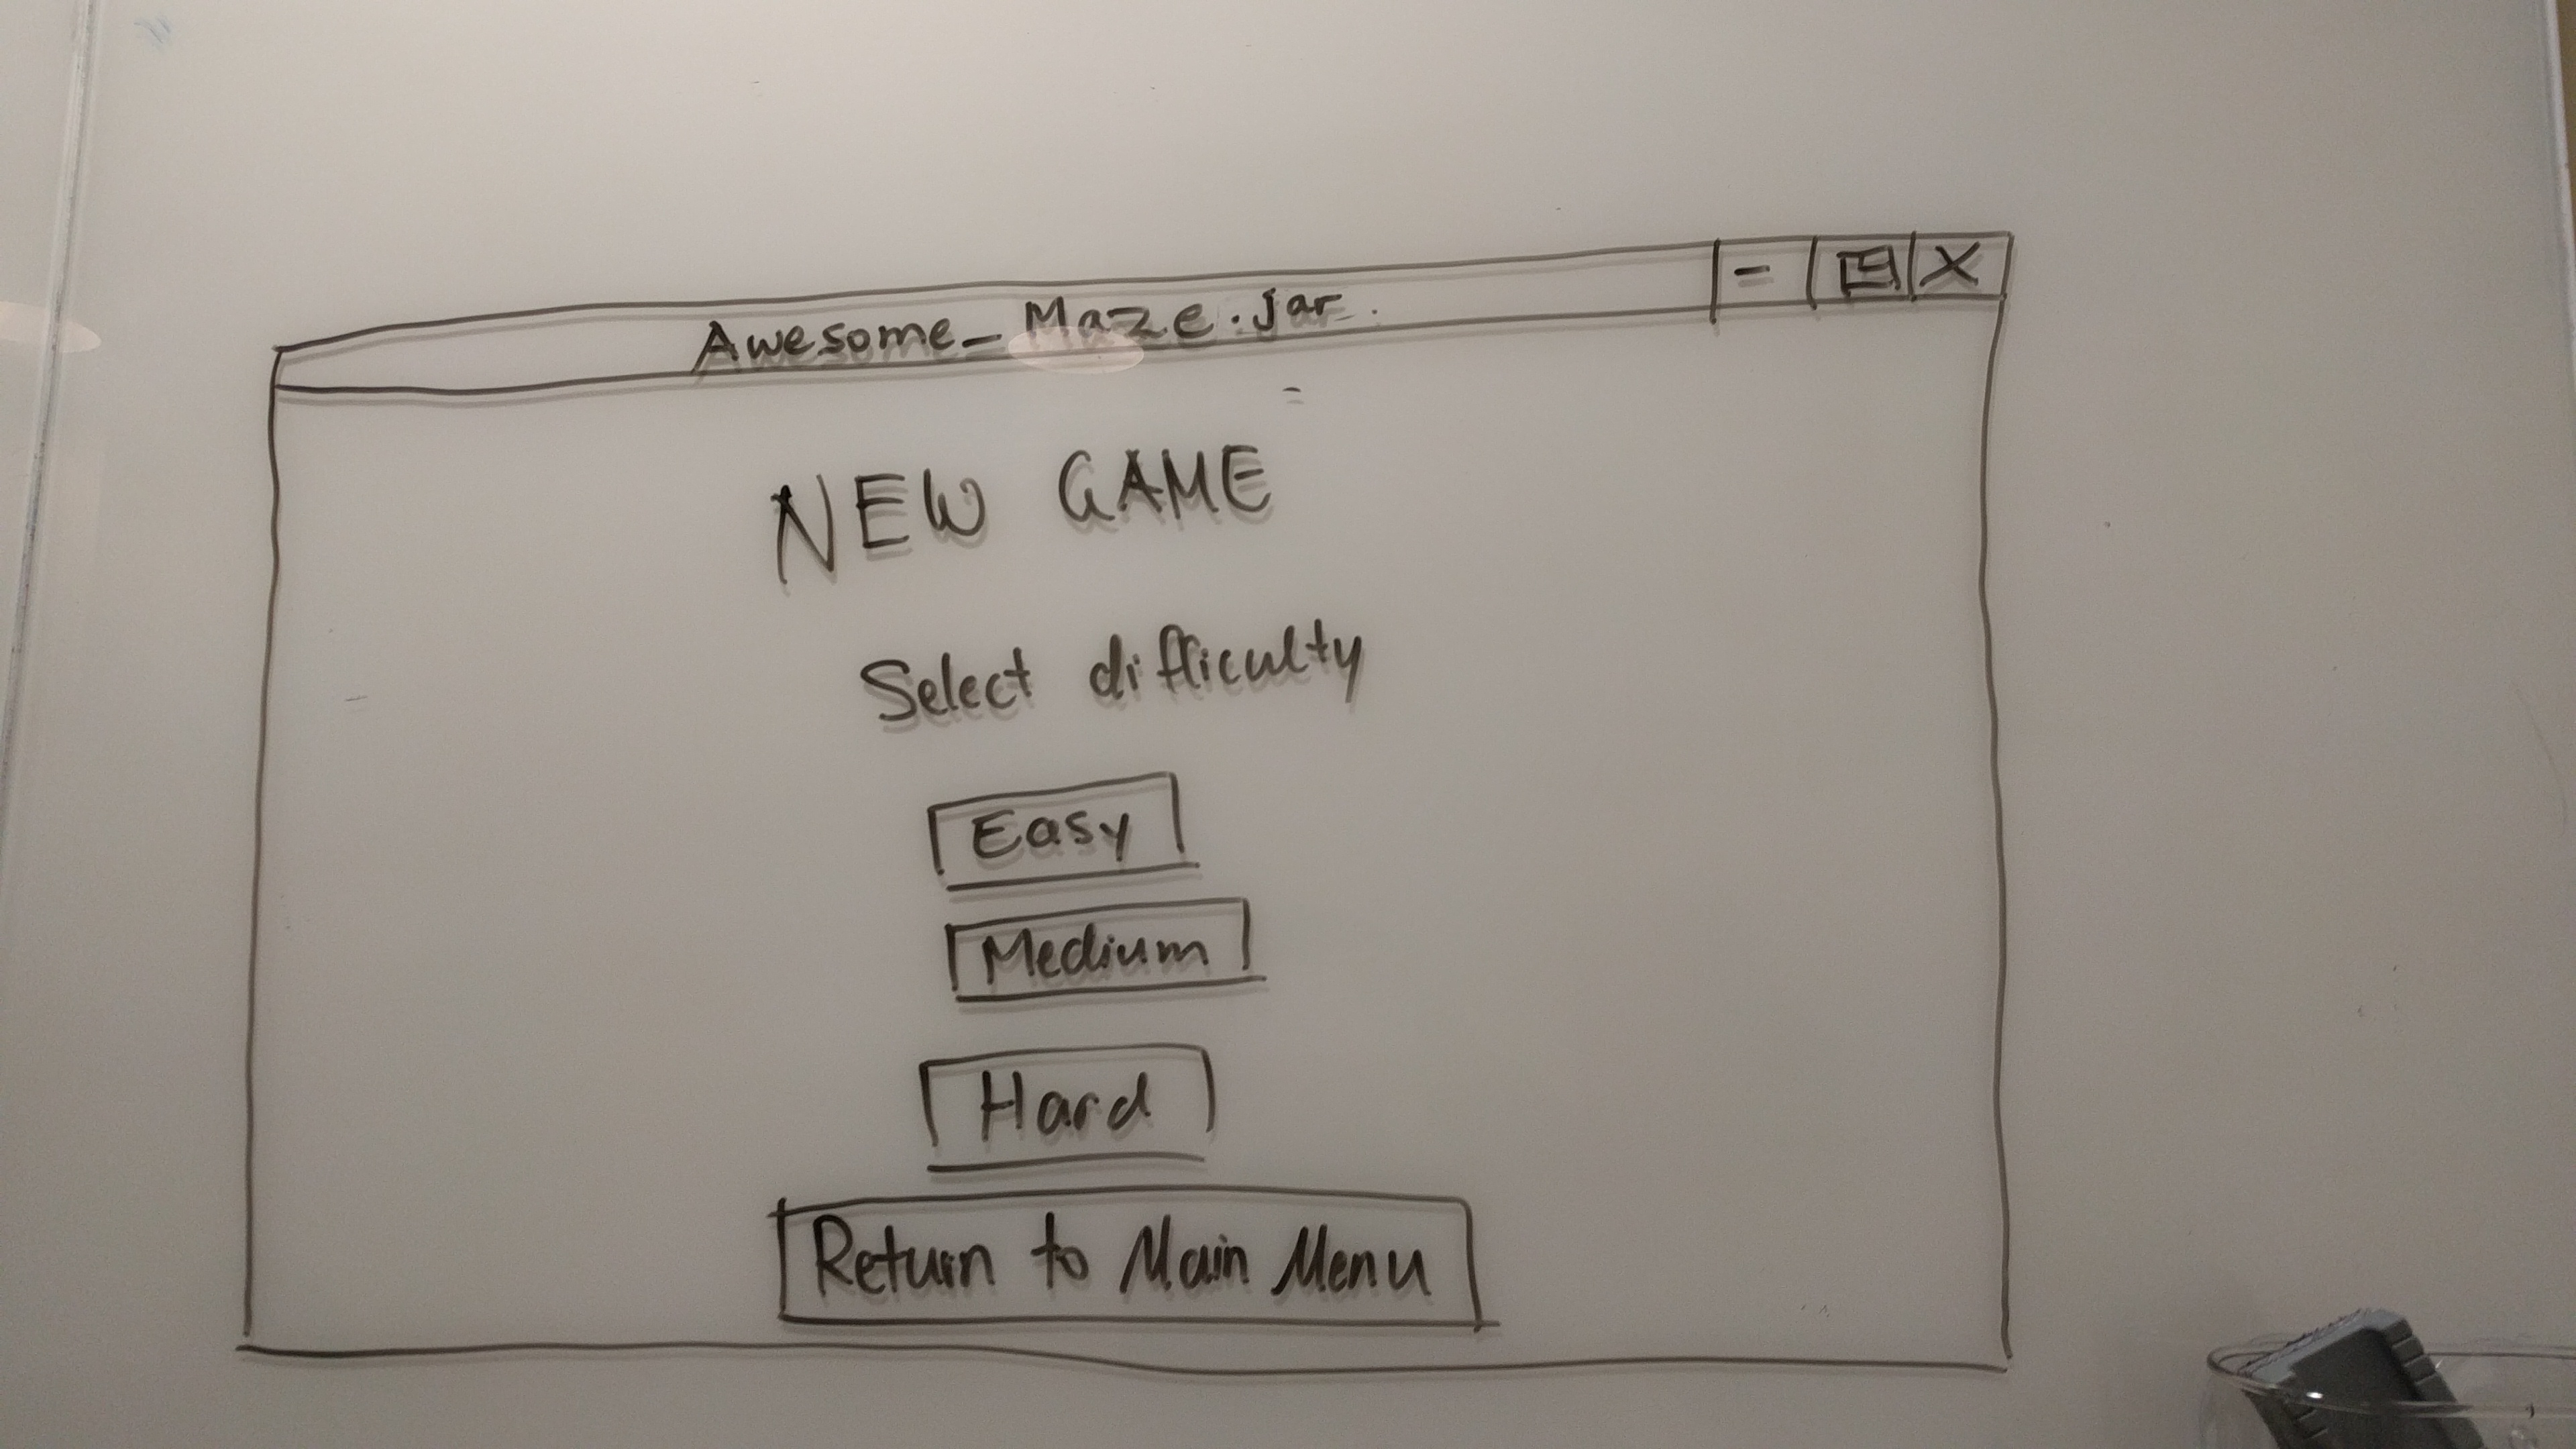 Awesome_Maze.jar
NEW GAME
Select difficulty
Easy
Medium
Hard
Return to Main Menu